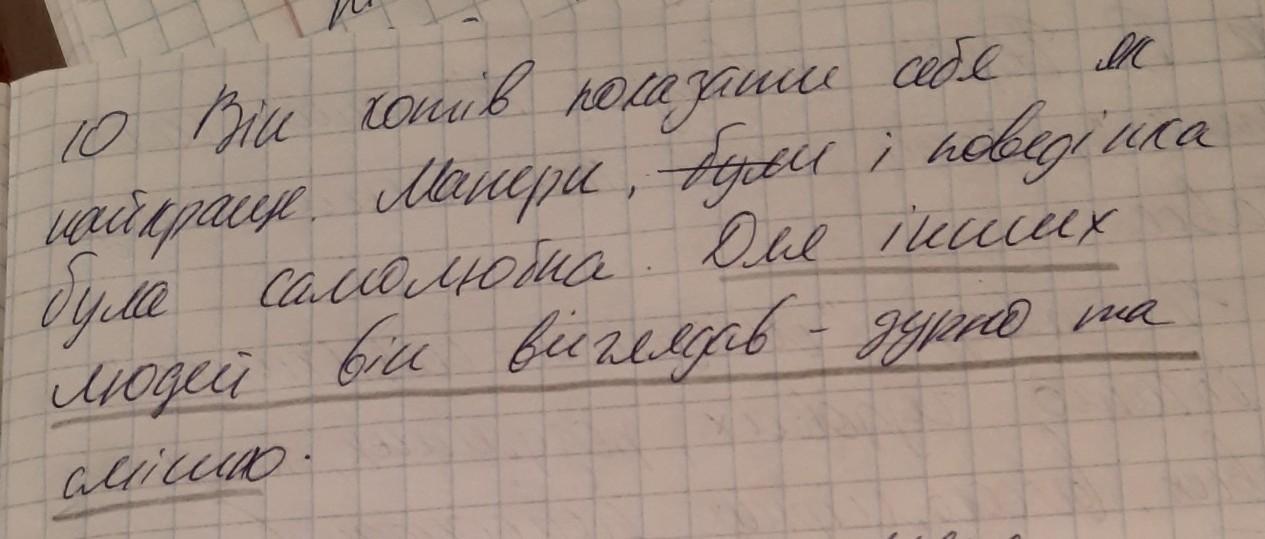 10 Він хотів показати себе як
найкраще. Манери, ~~були~~ і поведінка
була самолюбна. Для інших
людей він виглядав - дурно та
смішно.